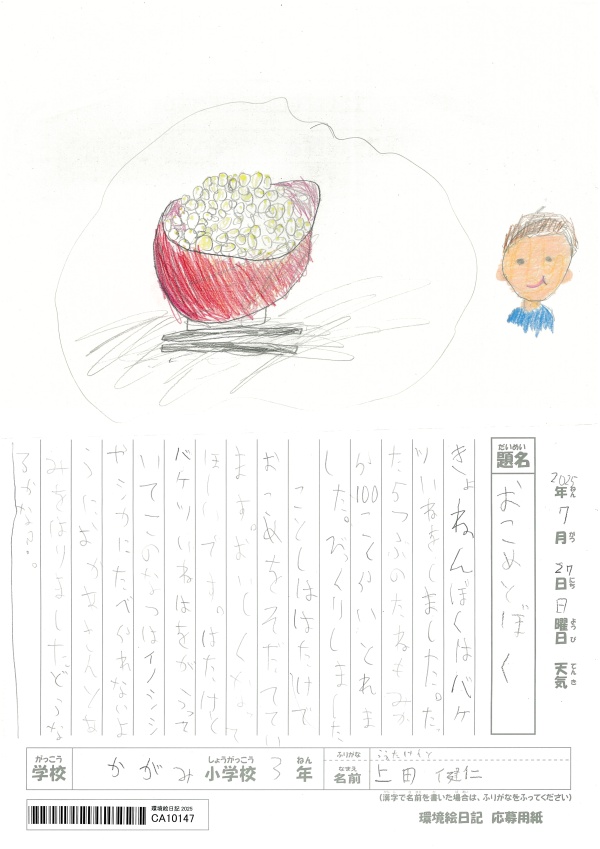 2025年 7月 27日 日曜日 天気
ねん がつ にち ようび てんき
だいめい
題名
おこめとぼく
きょねんぼくはバケ
ツいねをしました。た
た5つぶのたねもみか
ら100こぐらいとれま
した。びっくりしました
ことしははたけで
おこめをそだててい
ます。おいしくなって
ほしいです。はたけと
バケツいねはをがちがって
いてこのなつはイノシシ
やシカにたべられないよ
うにおかあさんとあ
みをはりました。どうな
るかな。
がっこう
学校 かがみ
しょうがっこう
小学校 3年
ねん
ふりがな
なまえ
名前 上田 健仁
(漢字で名前を書いた場合は、ふりがなをふってください)
環境絵日記 2025
CA10147
環境絵日記 応募用紙